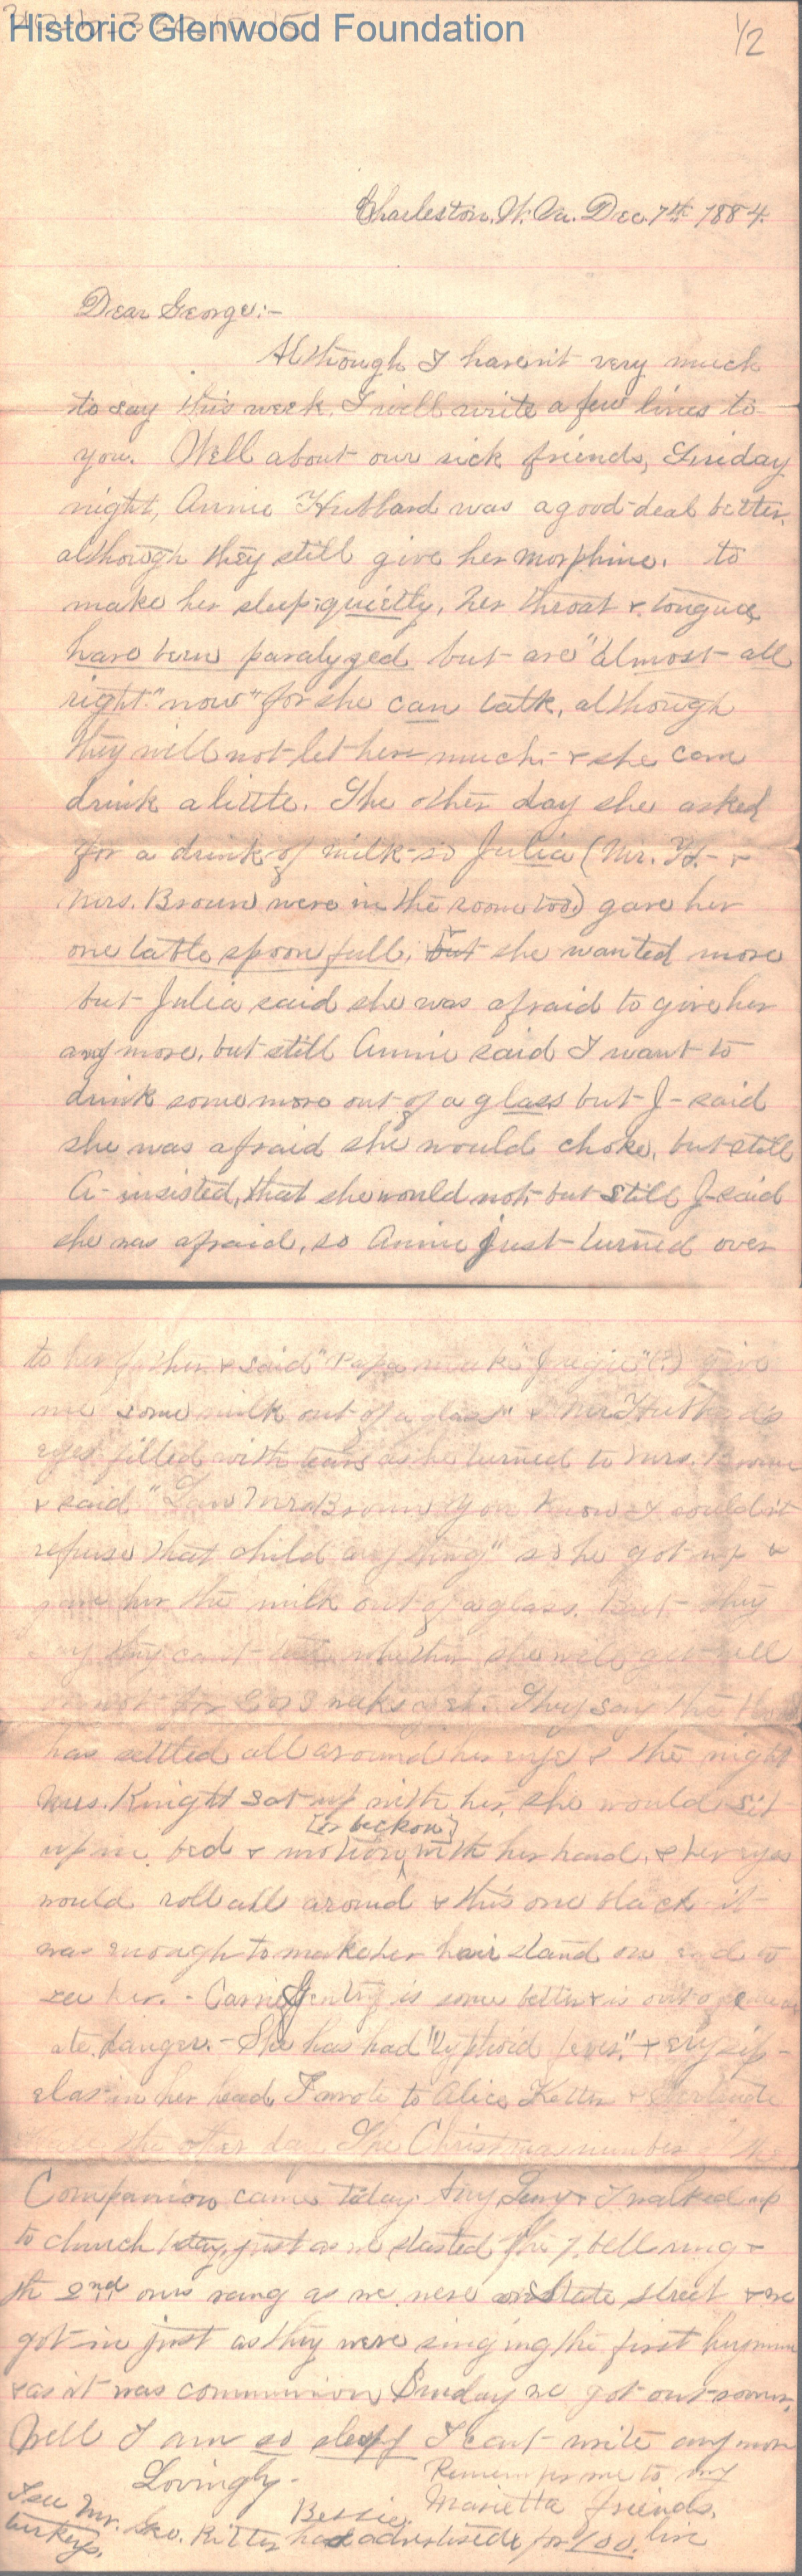 Historic Glenwood Foundation
1/2
Charleston, W. Va. Dec. 7th 1884.
Dear George:-
Although I haven't very much
to say this week, I will write a few lines to
you. Well about our sick friends, Friday
night, Annie Hubbard was a good-deal better,
although they still give her morphine. to
make her sleep quietly, her throat & tongue
have been paralyzed but are "almost all
right" "now" for she can talk, although
they will not let her much- & she can
drink a little. The other day she asked
for a drink of milk- so Julia (Mr. H.- &
Mrs. Brown were in the room too) gave her
one table spoon full, but she wanted more
but Julia said she was afraid to give her
any more, but still Annie said I want to
drink some more out of a glass but J- said
she was afraid she would choke, but still
A- insisted, that she would not, but still J- said
she was afraid, so Annie just turned over
to her father & said "Papa make (?) give
me some milk out of a glass" & Mr Hubbard's
eyes filled with tears as he turned to Mrs. Brown
& said "Law Mrs Brown you know I couldn't
refuse that child anything" so he got up &
gave her the milk out of a glass. But they
say they can't tell whether she will get well
or not for 2 or 3 weeks yet. They say the
has settled all around her eye & the night
Mrs. Knight sat up with her, she would sit
[or beckon]
up in bed & motion with her hand, & her eyes
would roll all around & this one black it
was enough to make her hair stand on end to
see her. - Carrie Gentry is some better & is out of
ate danger. - She has had "typhoid fever" & erysip-
elas in her head. I wrote to Alice & Gertrude
the other day. The Christmas number of the
Companion came today. & I walked up
to church today, just as we started the 1. bell rung &
the 2nd one rang as we were on State street & we
got in just as they were singing the first hymn
& as it was communion Sunday we got out soon.
Well I am so sleepy I can't write any more
Lovingly- Remember me to my
Bessie. Marietta friends.
I see Mr. Geo. Ritter has advertised for 200. live
turkeys.